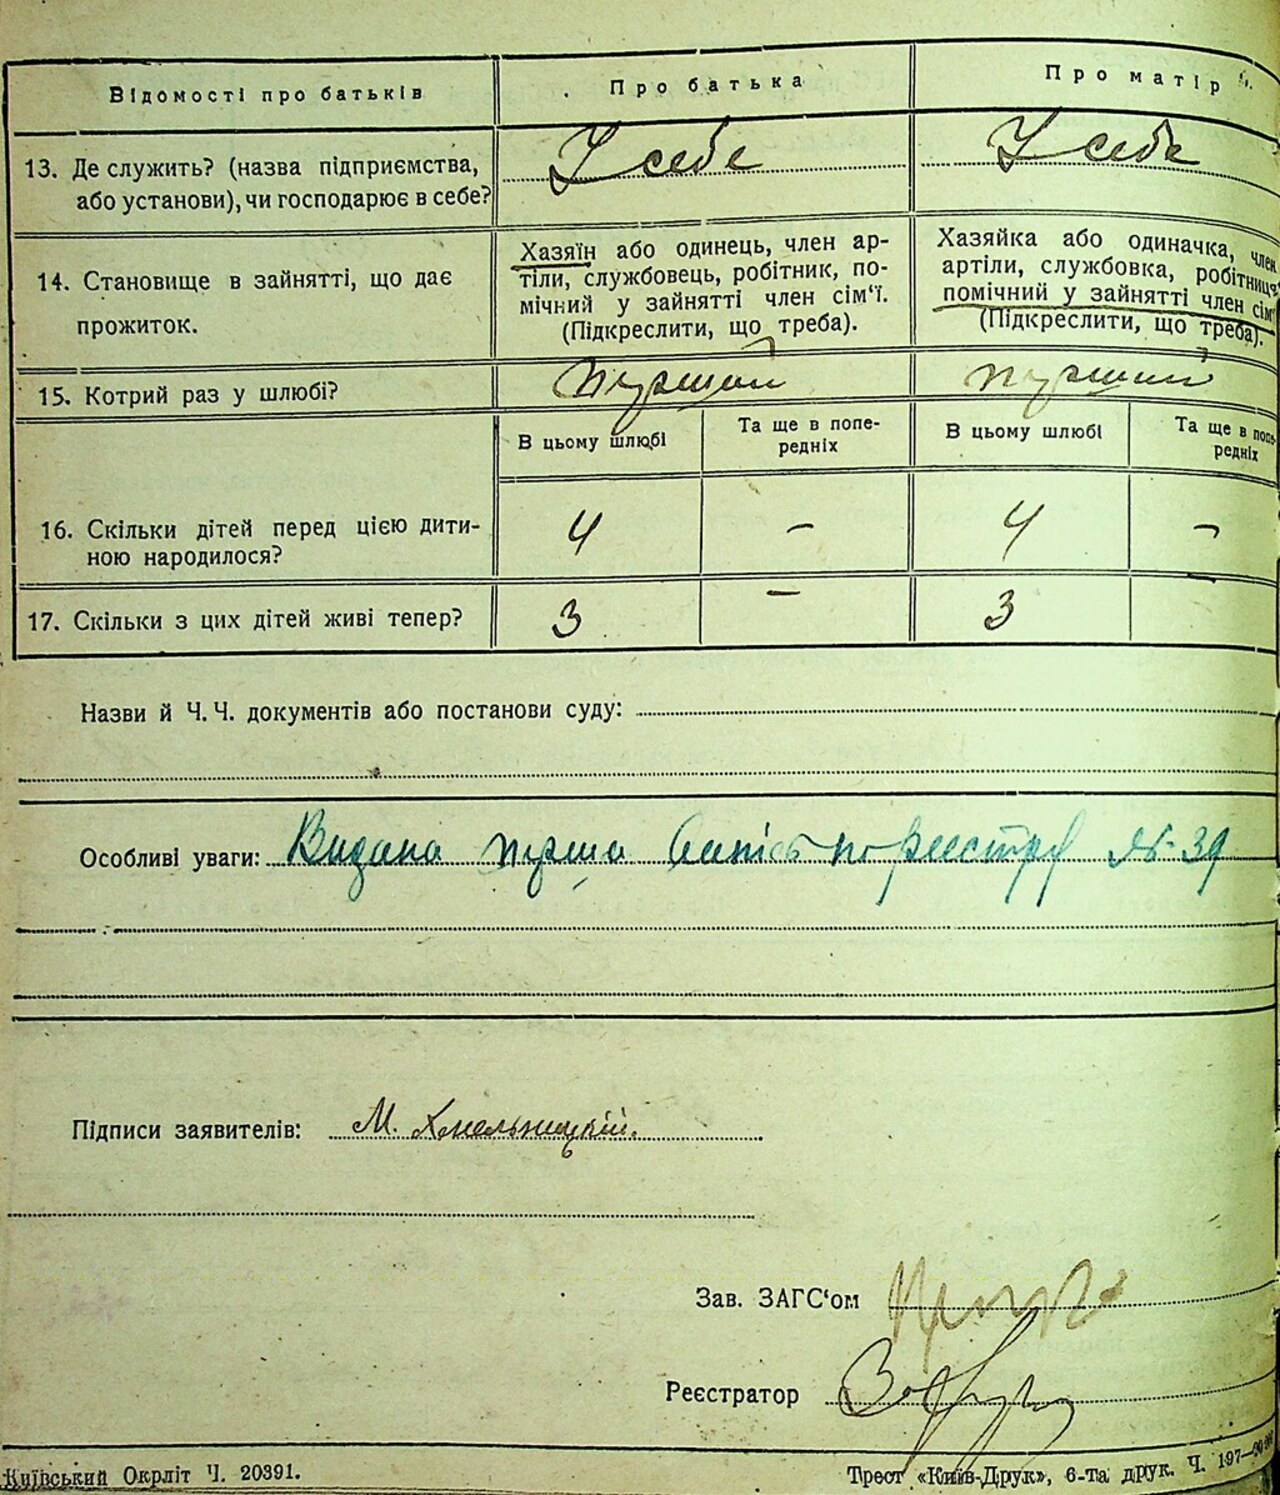 Відомості про батьків
Про батька
Про матір
13. Де служить? (назва підприємства, або установи), чи господарює в себе?
У себе
У себе
14. Становище в зайнятті, що дає прожиток.
Хазяїн або одинець, член ар-
тіли, службовець, робітник, по-
мічний у зайнятті член сім'ї.
(Підкреслити, що треба).
Хазяйка або одиначка, член
артіли, службовка, робітниця,
помічний у зайнятті член сім'
(Підкреслити, що треба).
15. Котрий раз у шлюбі?
перший
перший
В цьому шлюбі
Та ще в попе-
редніх
В цьому шлюбі
Та ще в попе-
редніх
16. Скільки дітей перед цією дити-
ною народилося?
4
–
4
–
17. Скільки з цих дітей живі тепер?
3
–
3
–
Назви й Ч. Ч. документів або постанови суду:
Особливі уваги: Видана перша по реестру № 39
Підписи заявителів: М. Хмельницкій.
Зав. ЗАГС'ом
Реєстратор
Київський Окрліт Ч. 20391.
Трест «Київ-Друк», 6-та друк. Ч. 197—